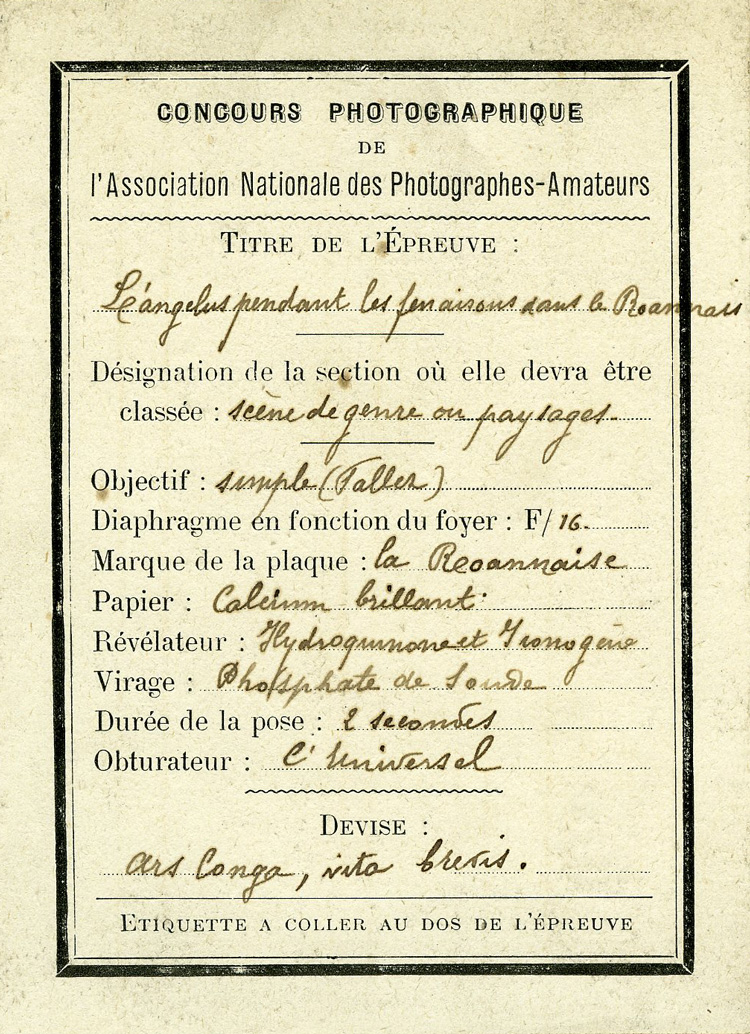 CONCOURS PHOTOGRAPHIQUE
DE
l'Association Nationale des Photographes-Amateurs
TITRE DE L'ÉPREUVE :
L'angelus pendant les fenaisons dans le Roannais
Désignation de la section où elle devra être
classée : scène de genre ou paysages.
Objectif : simple ( )
Diaphragme en fonction du foyer : F/ 16.
Marque de la plaque : la Roannaise
Papier : Calcium brillant
Révélateur : Hydroquinone et
Virage : Phosphate de Soude
Durée de la pose : 2 secondes
Obturateur : L'Universel
DEVISE :
Ars longa, vita brevis.
ETIQUETTE A COLLER AU DOS DE L'ÉPREUVE